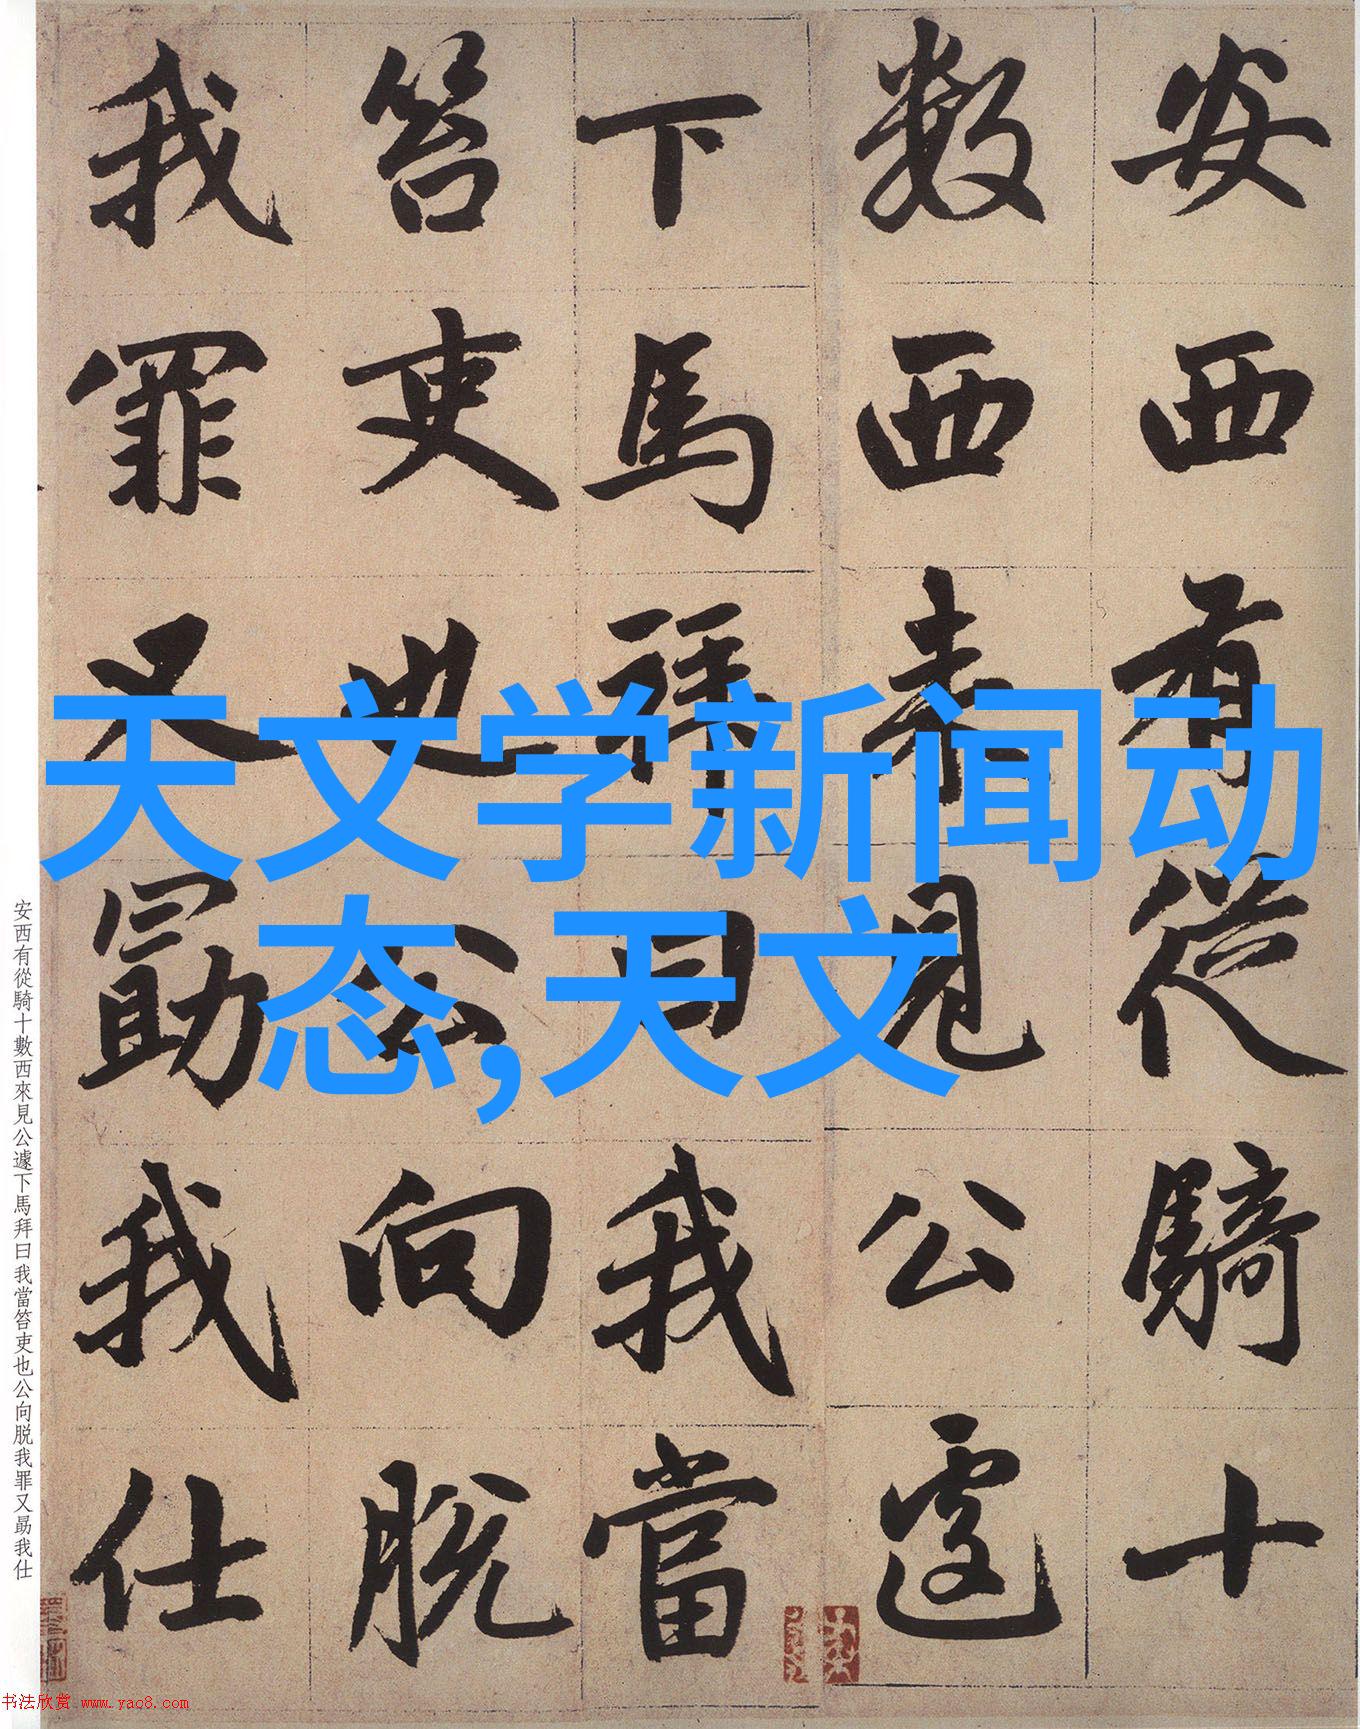 安西有從騎十
數西來見公遽
下馬拜曰我當
笞吏也公向脫
我罪又勗我仕
天文学新闻动
态,天文
安西有從騎十數西來見公遽下馬拜曰我當笞吏也公向脱我罪又勗我仕
书法欣赏 www.yac8.com